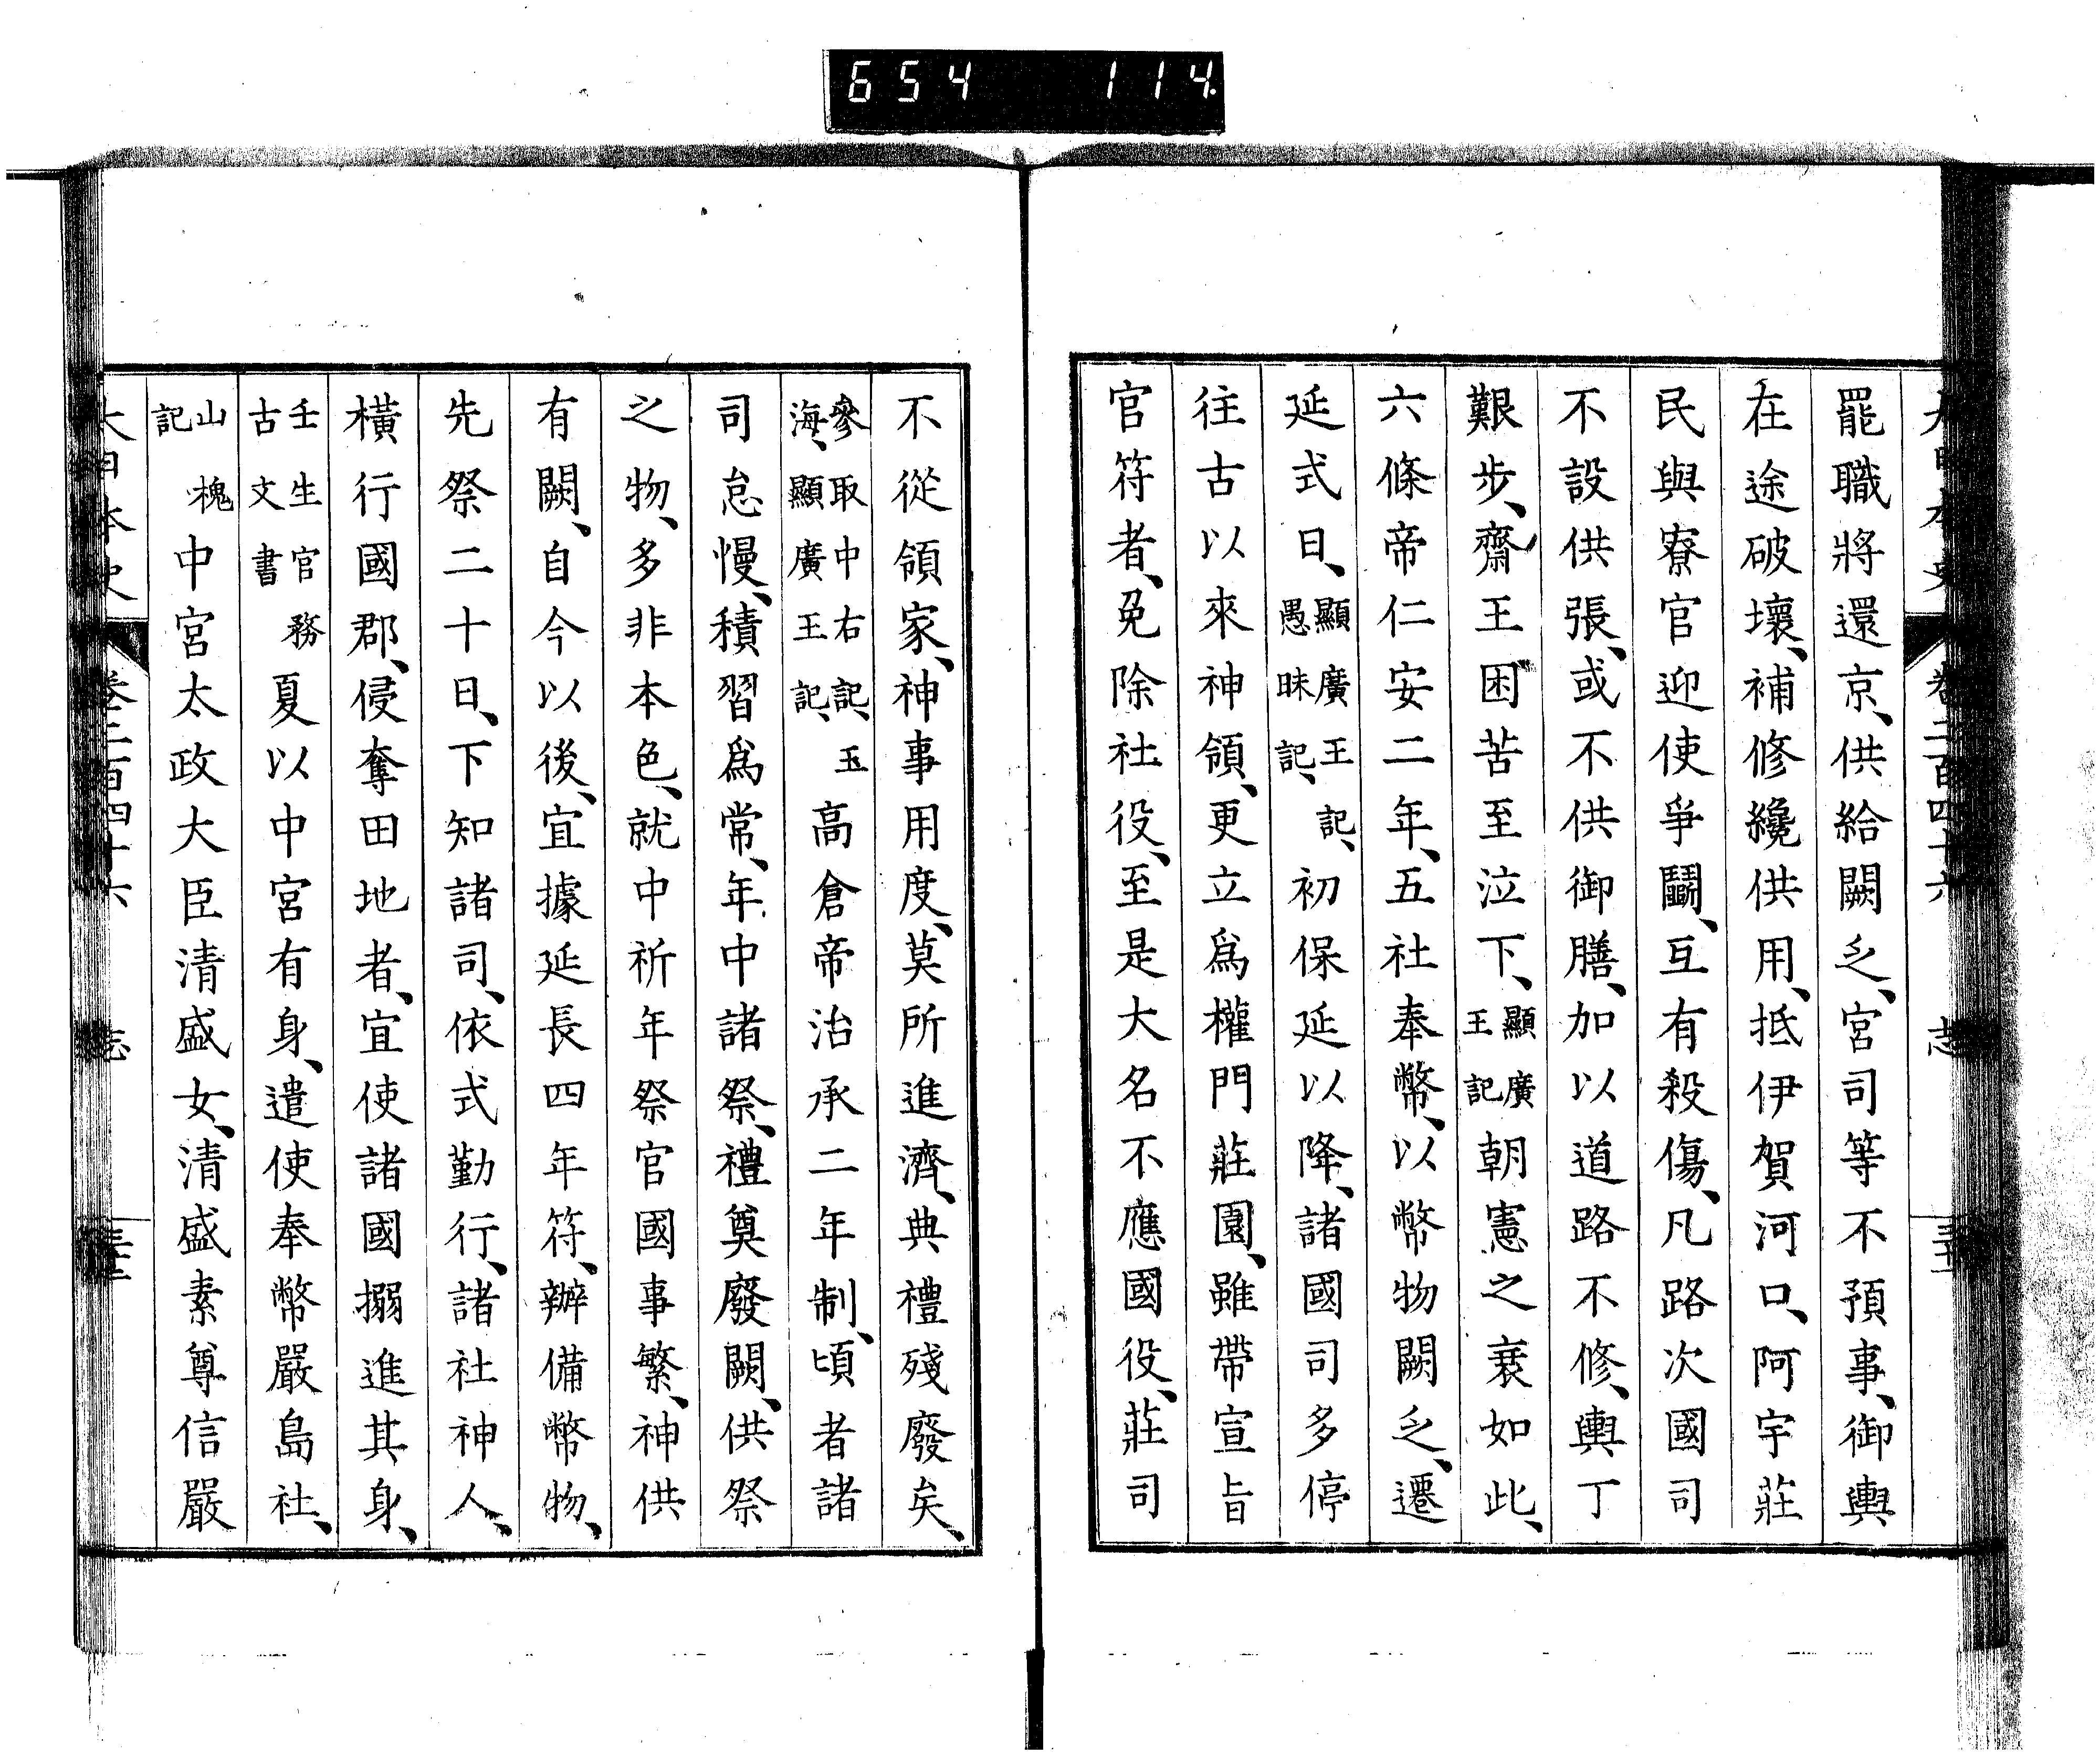 654 114.
大日本史 卷二百四十六 志
罷職將還京、供給闕乏、宮司等不預事、御輿
在途破壞、補修纔供用、抵伊賀河口、阿宇莊
民與寮官迎使爭鬭、互有殺傷、凡路次國司
不設供張、或不供御膳、加以道路不修、輿丁
艱步、齋王困苦至泣下、顯廣王記朝憲之衰如此、
六條帝仁安二年、五社奉幣、以幣物闕乏、遷
延式日、顯廣王記、愚昧記、初保延以降、諸國司多停
往古以來神領、更立爲權門莊園、雖帶宣旨
官符者、免除社役、至是大名不應國役、莊司
不從領家、神事用度、莫所進濟、典禮殘廢矣、
參取中右記、玉海、顯廣王記、高倉帝治承二年制、頃者諸
司怠慢、積習爲常、年中諸祭、禮奠廢闕、供祭
之物、多非本色、就中祈年祭官國事繁、神供
有闕、自今以後、宜據延長四年符、辦備幣物、
先祭二十日、下知諸司、依式勤行、諸社神人、
橫行國郡、侵奪田地者、宜使諸國搦進其身、
壬生官務古文書夏以中宮有身、遣使奉幣嚴島社、
山槐記中宮太政大臣清盛女、清盛素尊信嚴
大日本史 卷二百四十六 志